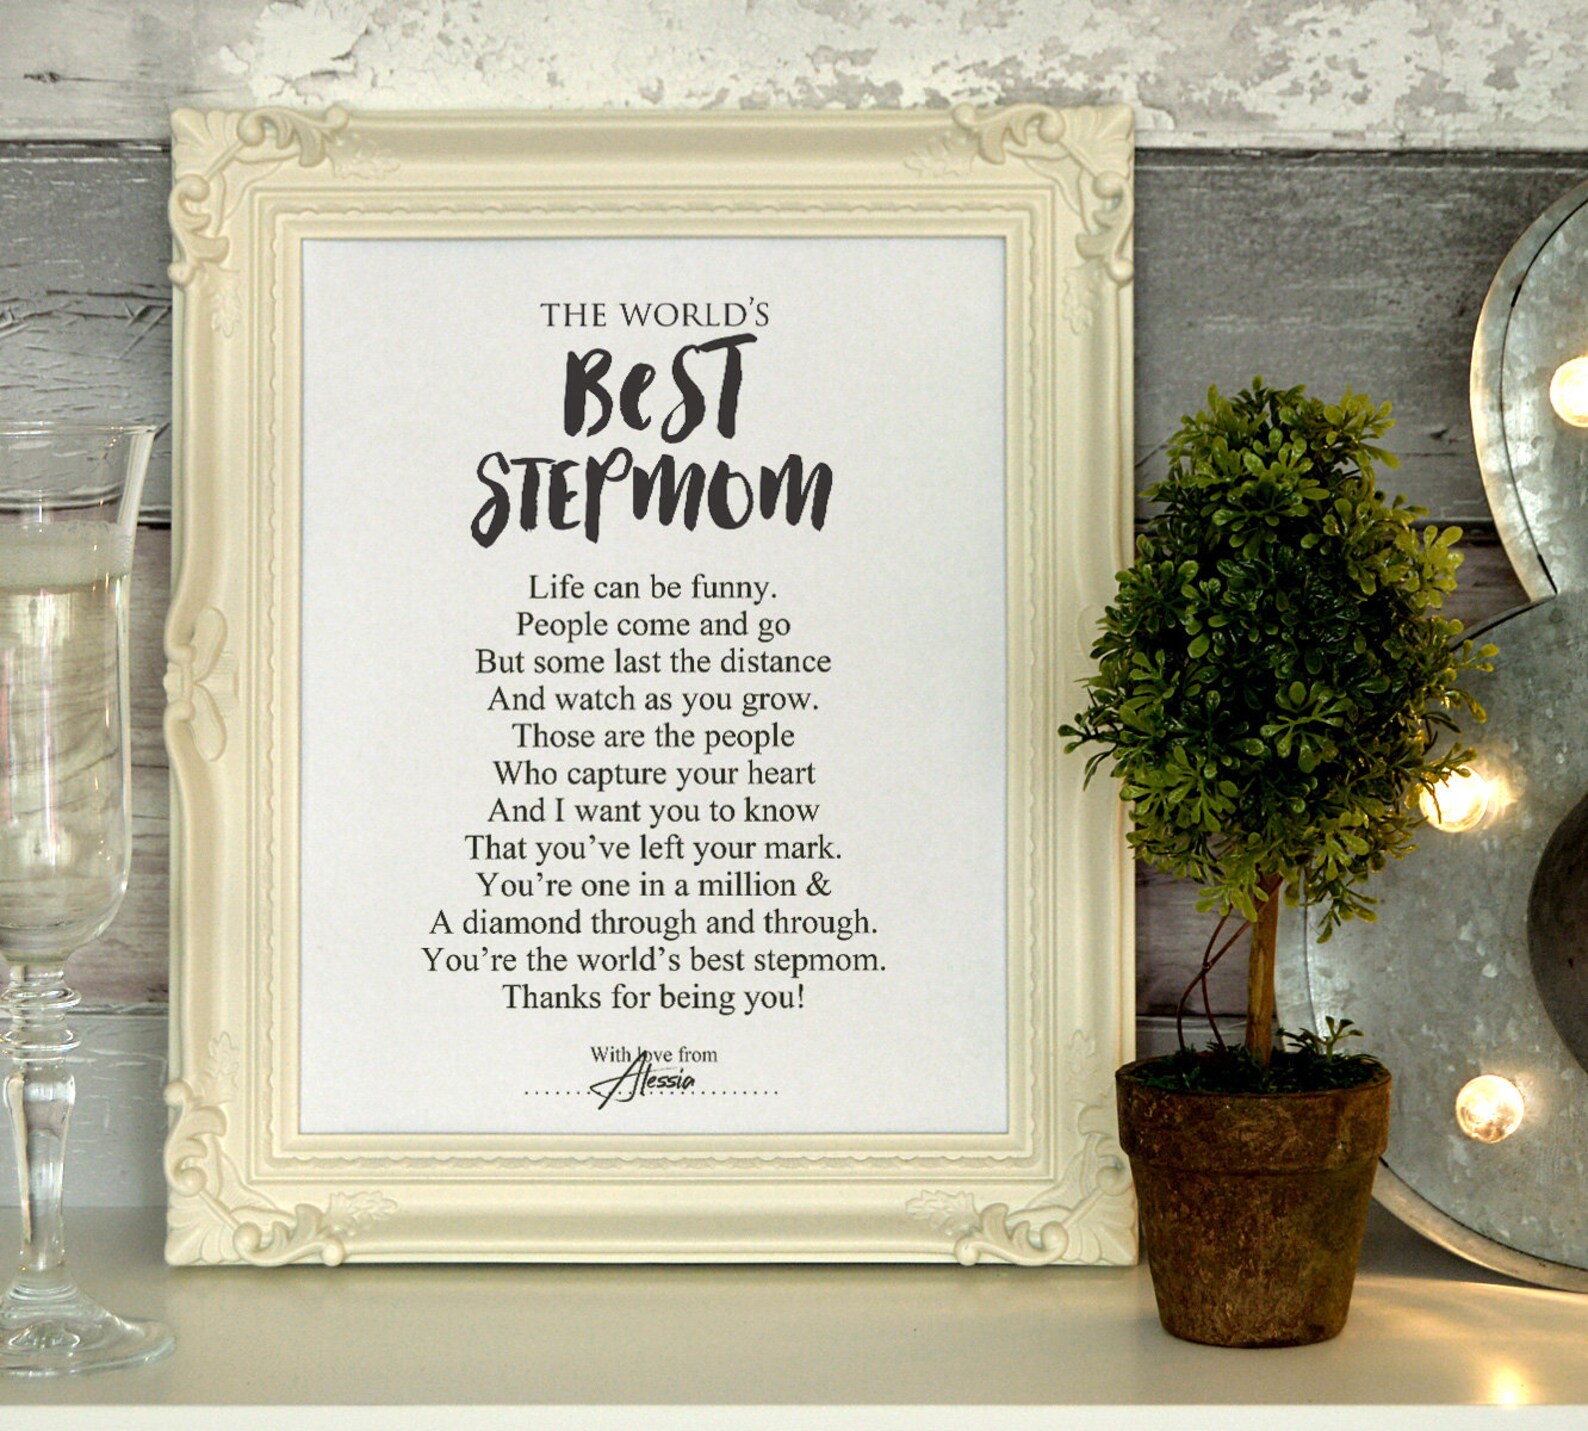 THE WORLD'S
BEST
STEPMOM
Life can be funny.
People come and go
But some last the distance
And watch as you grow.
Those are the people
Who capture your heart
And I want you to know
That you've left your mark.
You're one in a million &
A diamond through and through.
You're the world's best stepmom.
Thanks for being you!
With love from
Alessia